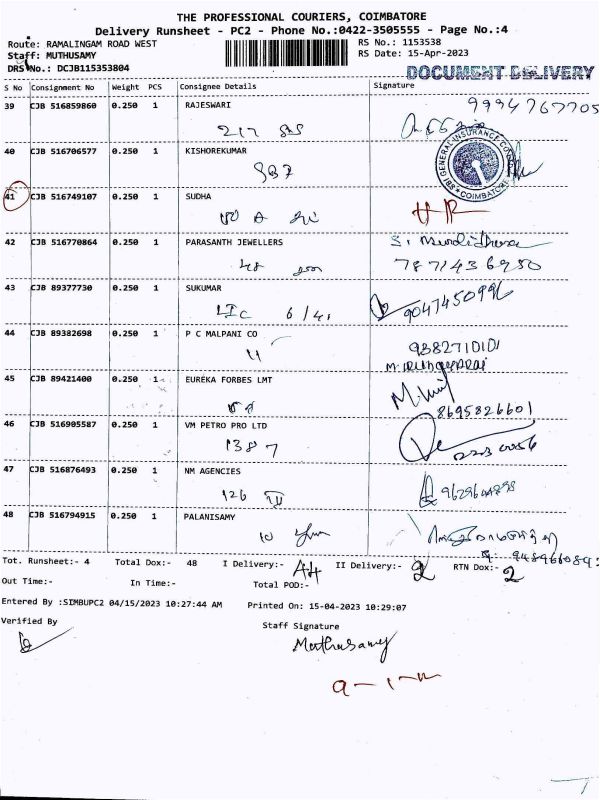 THE PROFESSIONAL COURIERS, COIMBATORE
Delivery Runsheet - PC2 - Phone No.:0422-3505555 - Page No.:4
Route: RAMALINGAM ROAD WEST
RS No.: 1153538
Staff: MUTHUSAMY
RS Date: 15-Apr-2023
DRS No.: DCJB115353804
DOCUMENT DELIVERY
S No Consignment No Weight PCS Consignee Details Signature
39 CJB 516859860 0.250 1 RAJESWARI
9994767705
217
40 CJB 516706577 0.250 1 KISHOREKUMAR
SBI GENERAL INSURANCE CO
COIMBATORE
41 CJB 516749107 0.250 1 SUDHA
42 CJB 516770864 0.250 1 PARASANTH JEWELLERS
7871436950
43 CJB 89377730 0.250 1 SUKUMAR
LIC 6/41
9047450996
44 CJB 89382698 0.250 1 P C MALPANI CO
11
9382710101
45 CJB 89421400 0.250 1 EUREKA FORBES LMT
8695826601
46 CJB 516905587 0.250 1 VM PETRO PRO LTD
1387
47 CJB 516876493 0.250 1 NM AGENCIES
126
48 CJB 516794915 0.250 1 PALANISAMY
10
Tot. Runsheet:- 4 Total Dox:- 48 I Delivery:- 44 II Delivery:- 2 RTN Dox:- 2
Out Time:- In Time:- Total POD:-
Entered By :SIMBUPC2 04/15/2023 10:27:44 AM Printed On: 15-04-2023 10:29:07
Verified By
Staff Signature
Muthusamy